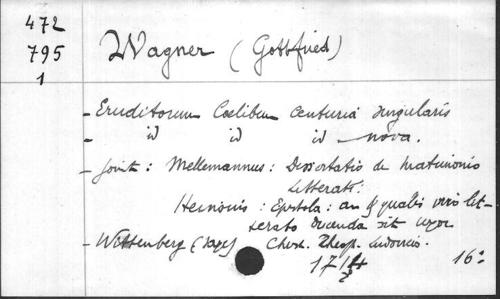 472
795
1
Wagner (Gottfried)
- Eruditorum Coelibum Centuria singularis
- id id id nova.
- Joint: Mellemannus: Dissertatio de matrimonio
litterati:
Heinsius: Epistola: an & quali viro lit-
terato ducenda sit uxor
- Wittenberg ( Christ. Theop. Ludovici.
17 16º